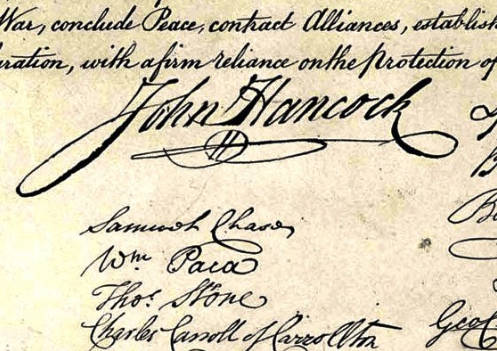 War, conclude Peace, contract Alliances, establish
with a firm reliance on the Protection of
John Hancock
Samuel Chase
Wm. Paca
Thos. Stone
Charles Carroll of Carrollton
Geo